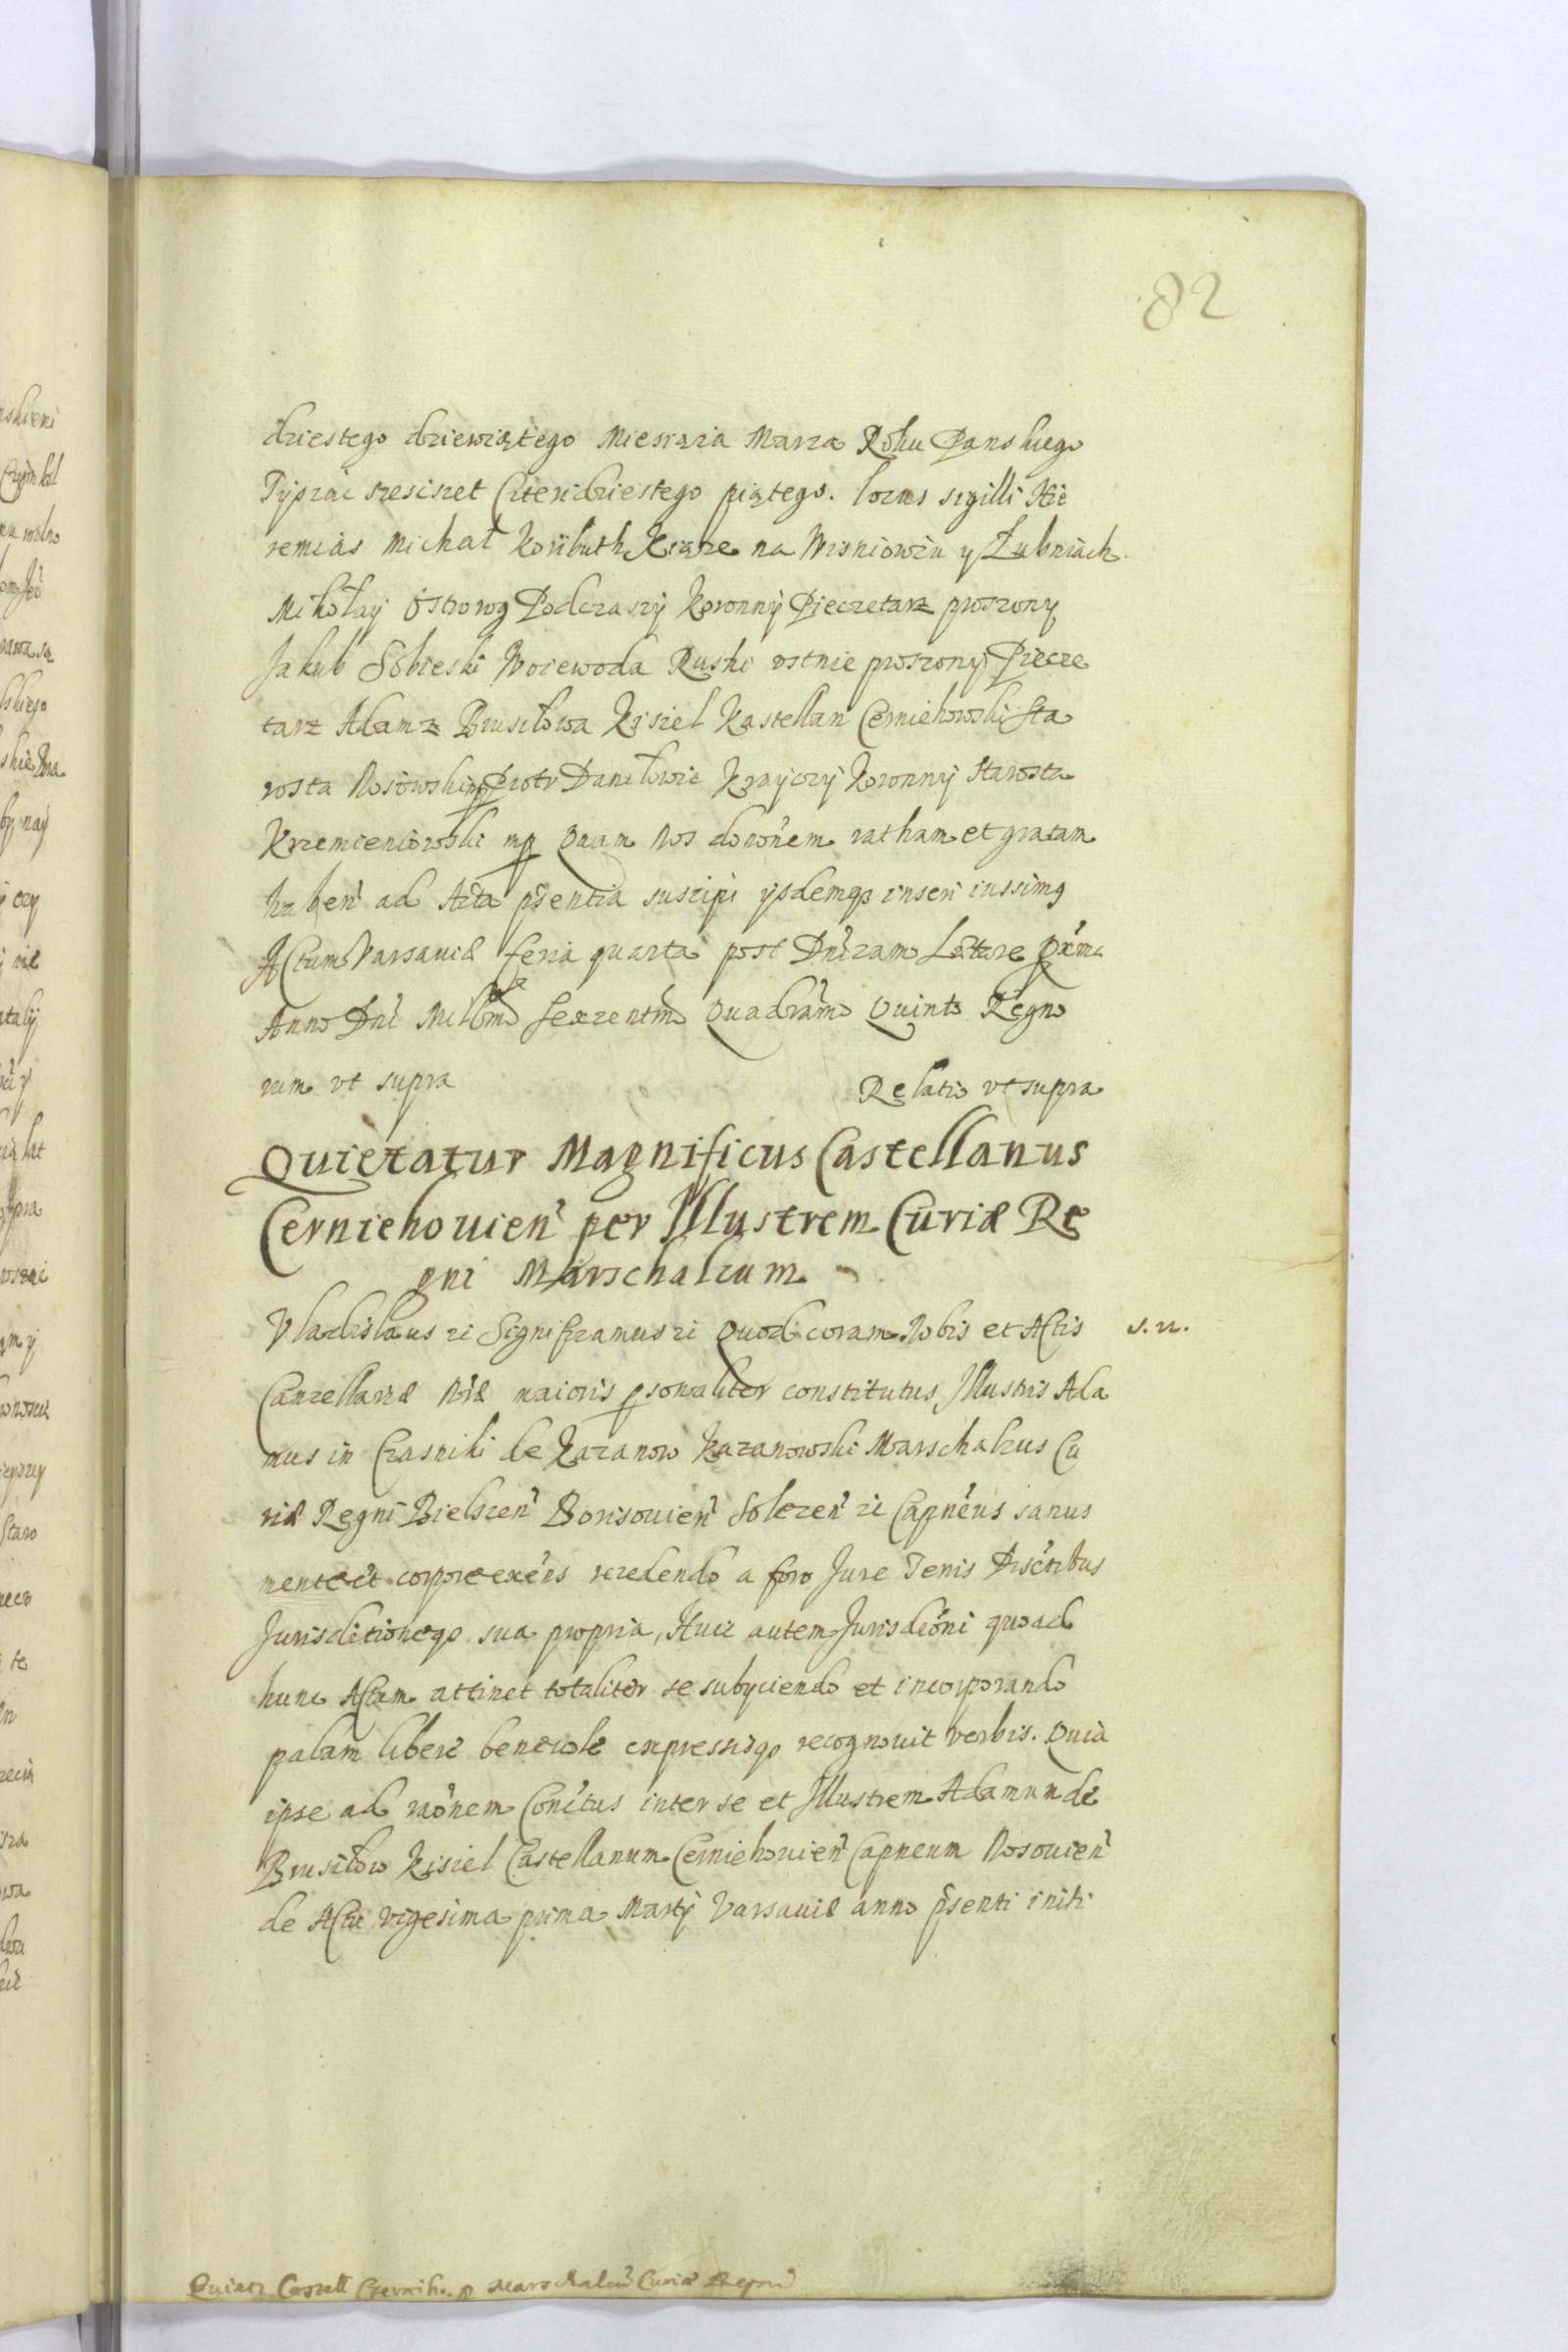 82
dziestego dziewiątego Miesiąca Marca Roku Panskiego
Tysiąc szescset Czteridziestego piątego. locus sigilli Hie
remias Michał Koributh Xiąze na Wisniowcu y Łubniach
Mikołay Ostrorog Podczaszÿ Koronnÿ Pieczetarz proszony
Jakub Sobieski Woiewoda Ruski ustnie proszonÿ Piecze
tarz Adam z Brusiłowa Kisiel Kasztellan Czerniehowski Sta
rosta Nosowski mp Piotr Daniłowic Krayczÿ Koronnÿ Starosta
Krzemieniowski mp Quam Nos doñonem ratham et gratam
haben̄ ad Acta p̃sentia suscipi ysdemq3 inseri iussimg
Actum Varsaviæ feria quarta post Dnĩcam Lætare px̃ma
Anno Dnĩ Millmõ Sexcentmõ Quadramõ Quinto Regno
rum vt supra Relatio vt supra
Quietatur Magnificus Castellanus
Cerniehouien̄ per Illustrem Curiæ Re
gni Marschalcum
Vladislaus ꝛc Significamus ꝛc Quod coram Nobis et Actis s. n.
Cancellariæ Nr̃æ maioris psonaliter constitutus Illustris Ada
mus in Crasniki de Kazanow Kazanowski Marschalcus Cu
riæ Regni Bielscen̄ Borisouien̄ Solecen̄ ꝛc Capnẽus sanus
mente et corpore exẽns recedendo a foro Jure Tenis Discr̃ibus
Jurisditioneq3 sua propria, Huic autem Jurisdiõni quoad
hunc Actum attinet totaliter se subyciendo et incorporando
palam libere beneuole expressisq3 recognouit verbis. Quia
ipse ad raõnem Conc̃tus inter se et Illustrem Adamum de
Brusiłow Kisiel Castellanum Cerniehouien̄ Capneum Nosouien̄
de Actu vigesima prima Martÿ Varsauiæ anno p̃senti initi
Quietr Castell Czernih. p Marschalcũ Curiæ Regni